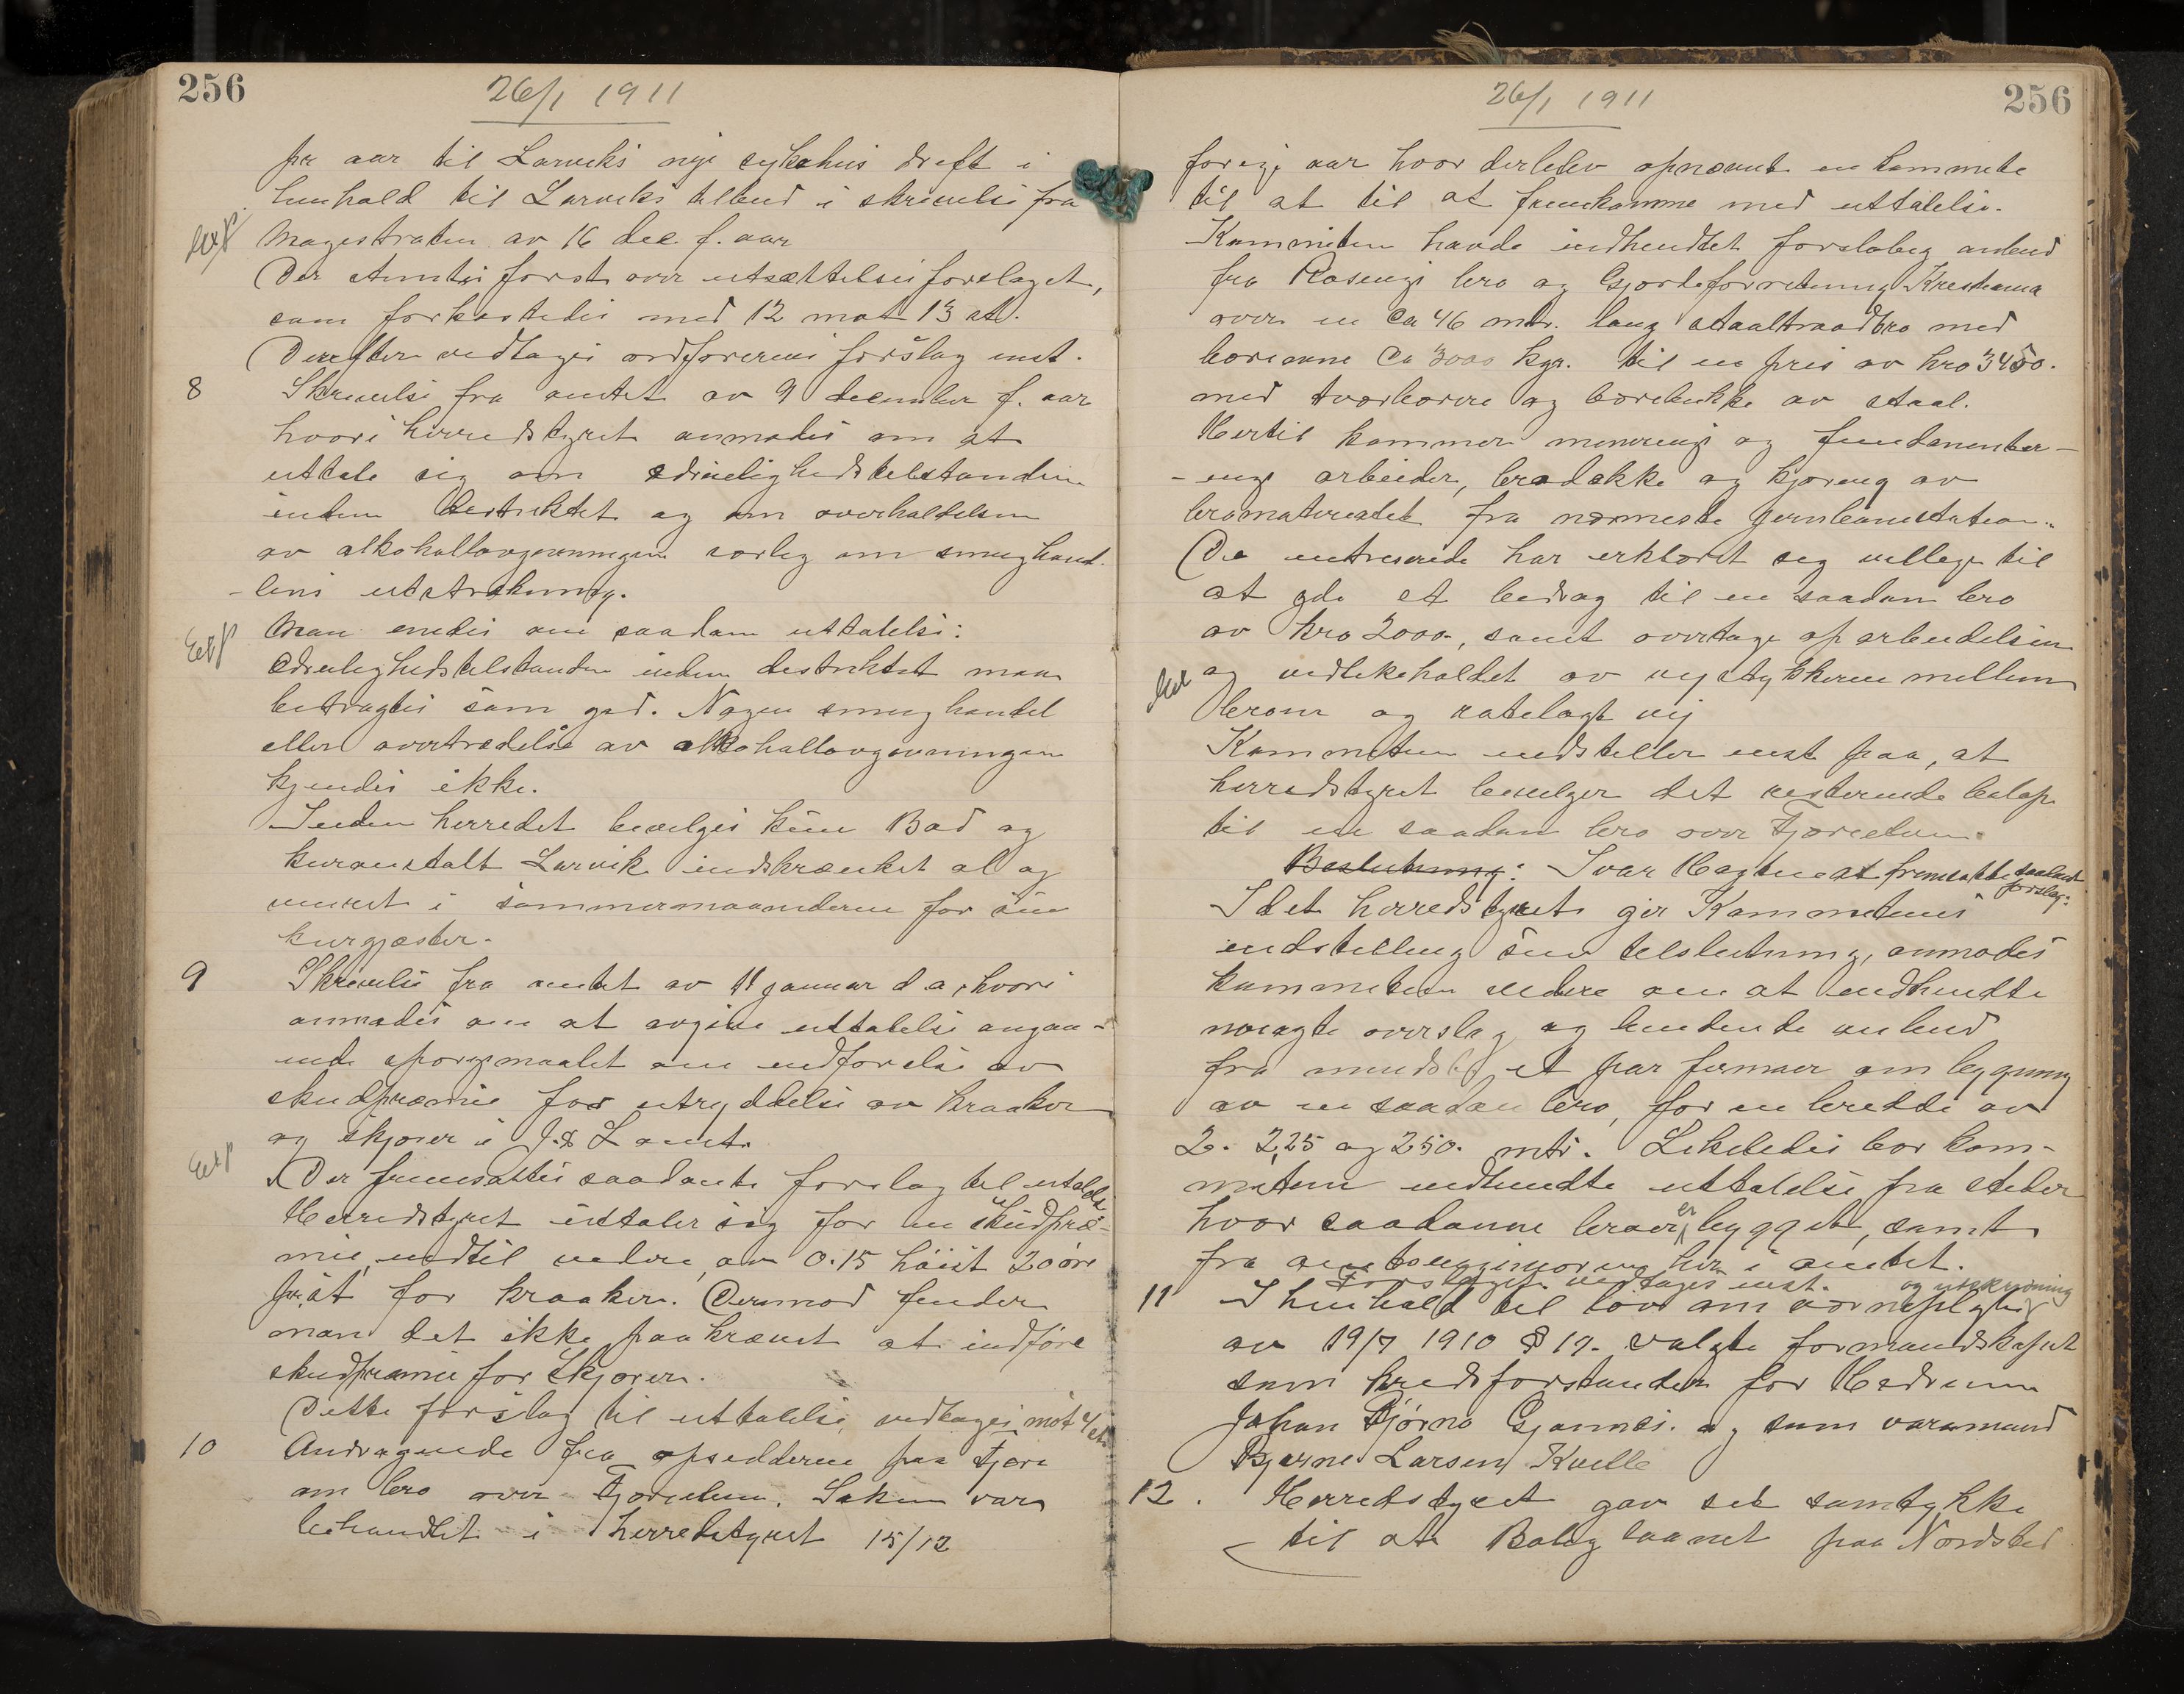 256
26/1 1911
pr aar til Larviks nye sykehus drift i
henhold til Larviks tilbud i skrivelse fra
Exp
Magistraten av 16 dec. f. aar
Der stemtes først over utsættelsesforslaget,
som forkastedes med 12 mot 13 st.
Derefter vedtages ordførerens forslag enst.
8 Skrivelse fra amtet av 9 december f. aar
hvori herredstyret anmodes om at
uttale sig om ædruelighedstilstanden
inden distriktet og om overholdelsen
av alkohollovgivningen særlig om smughand-
-lens utstrækning.
Exp
Man enedes om saadan uttalelse:
Ædruelighedstilstanden inden distriktet maa
betragtes som god. Nogen smughandel
eller overtrædelse av alkohollovgivningen
kjendes ikke.
Inden herredet bevilges kun Bad og
kuranstalt Larvik indskrænket øl og
vinret i sommermaanederne for sine
kurgjæster.
9 Skrivelse fra amtet av 11 januar d. a, hvori
anmodes om at avgive uttalelse angaa-
ende spørgsmaalet om indførelse av
skudpræmie for utryddelse av kraaker
og skjærer i J. & L amt.
Exp
Der fremsattes saadant forslag til uttalelse
Herredstyret uttaler sig for en skudpræ-
mie, indtil videre, av 0.15 høist 20 øre
pr. st for kraaker. Derimod finder
man det ikke paakrævet at indføre
skudpræmie for skjærer.
Dette forslag til uttalelse vedtages mot 4 st.
10 Andragende fra opsidderne paa Fjære
om bro over Fjæreelven. Saken var
behandlet i herredstyret 15/12
26/1 1911
256
forige aar hvor der blev opnævnt en kommite
til at til at fremkomme med uttalelse.
Kommiteen havde indhendtet foreløbig anbud
fra Rosengs bro og Gjærdeforretning Kristiania
over en ca 46 mtr. lang staaltraadbro med
bæreevne ca 3000 kgr. til en pris av kro 3450.
med tværbærere og bærebukke av staal.
Hertil kommer murerings og fundamenter-
-ings arbeider, brodække og kjøring av
bromaterialet fra nærmeste jernbanestation.
De intreserede har erklæret sig villige til
at yde et bidrag til en saadan bro
av kro 2000., samt overtage oparbeidelsen
og vedlikeholdet av veistykkerne mellem
broen og rodelagt vei
Kommiteen indstiller enst paa, at
herredstyret bevilger det resterende beløp
til en saadan bro over Fjæreelven.
Beslutning: Ivar Hagtvedt fremsatte saadant
forslag:
Idet herredstyret gir Kommiteens
indstilling sin tilslutning, anmodes
kommiteen videre om at indhendte
nøiagte overslag og bindende anbud
fra mindst et par firmaer om bygning
av en saadan bro, for en bredde av
2. 2,25 og 2.50. mtr. Likeledes bør kom-
miteen indhendte uttalelse fra steder
hvor saadanne broer er bygget, samt
fra amtsingeniøren her i amtet.
Forslaget vedtages enst.
11 I henhold til lov om værnepligt og utskrivning
av 19/7 1910 § 19. valgte formandskapet
som kredsforstander for Hedrum
Johan Bjørno Gjønnes. og som varamand
Bjerne Larsen Kvelle
12. Herredstyret gav sit samtykke
til at Boliglaanet paa Nordsted